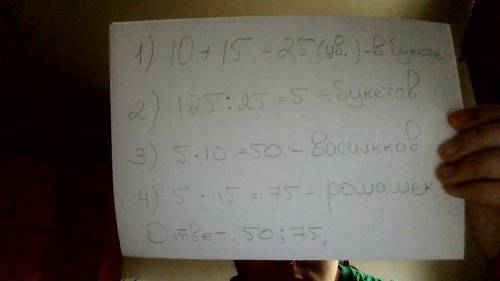 1) 10 + 15 = 25 (цв.) - в букете
2) 125 : 25 = 5 - букетов
3) 5 · 10 = 50 - васильков
4) 5 · 15 = 75 - ромашек
Ответ. 50; 75,